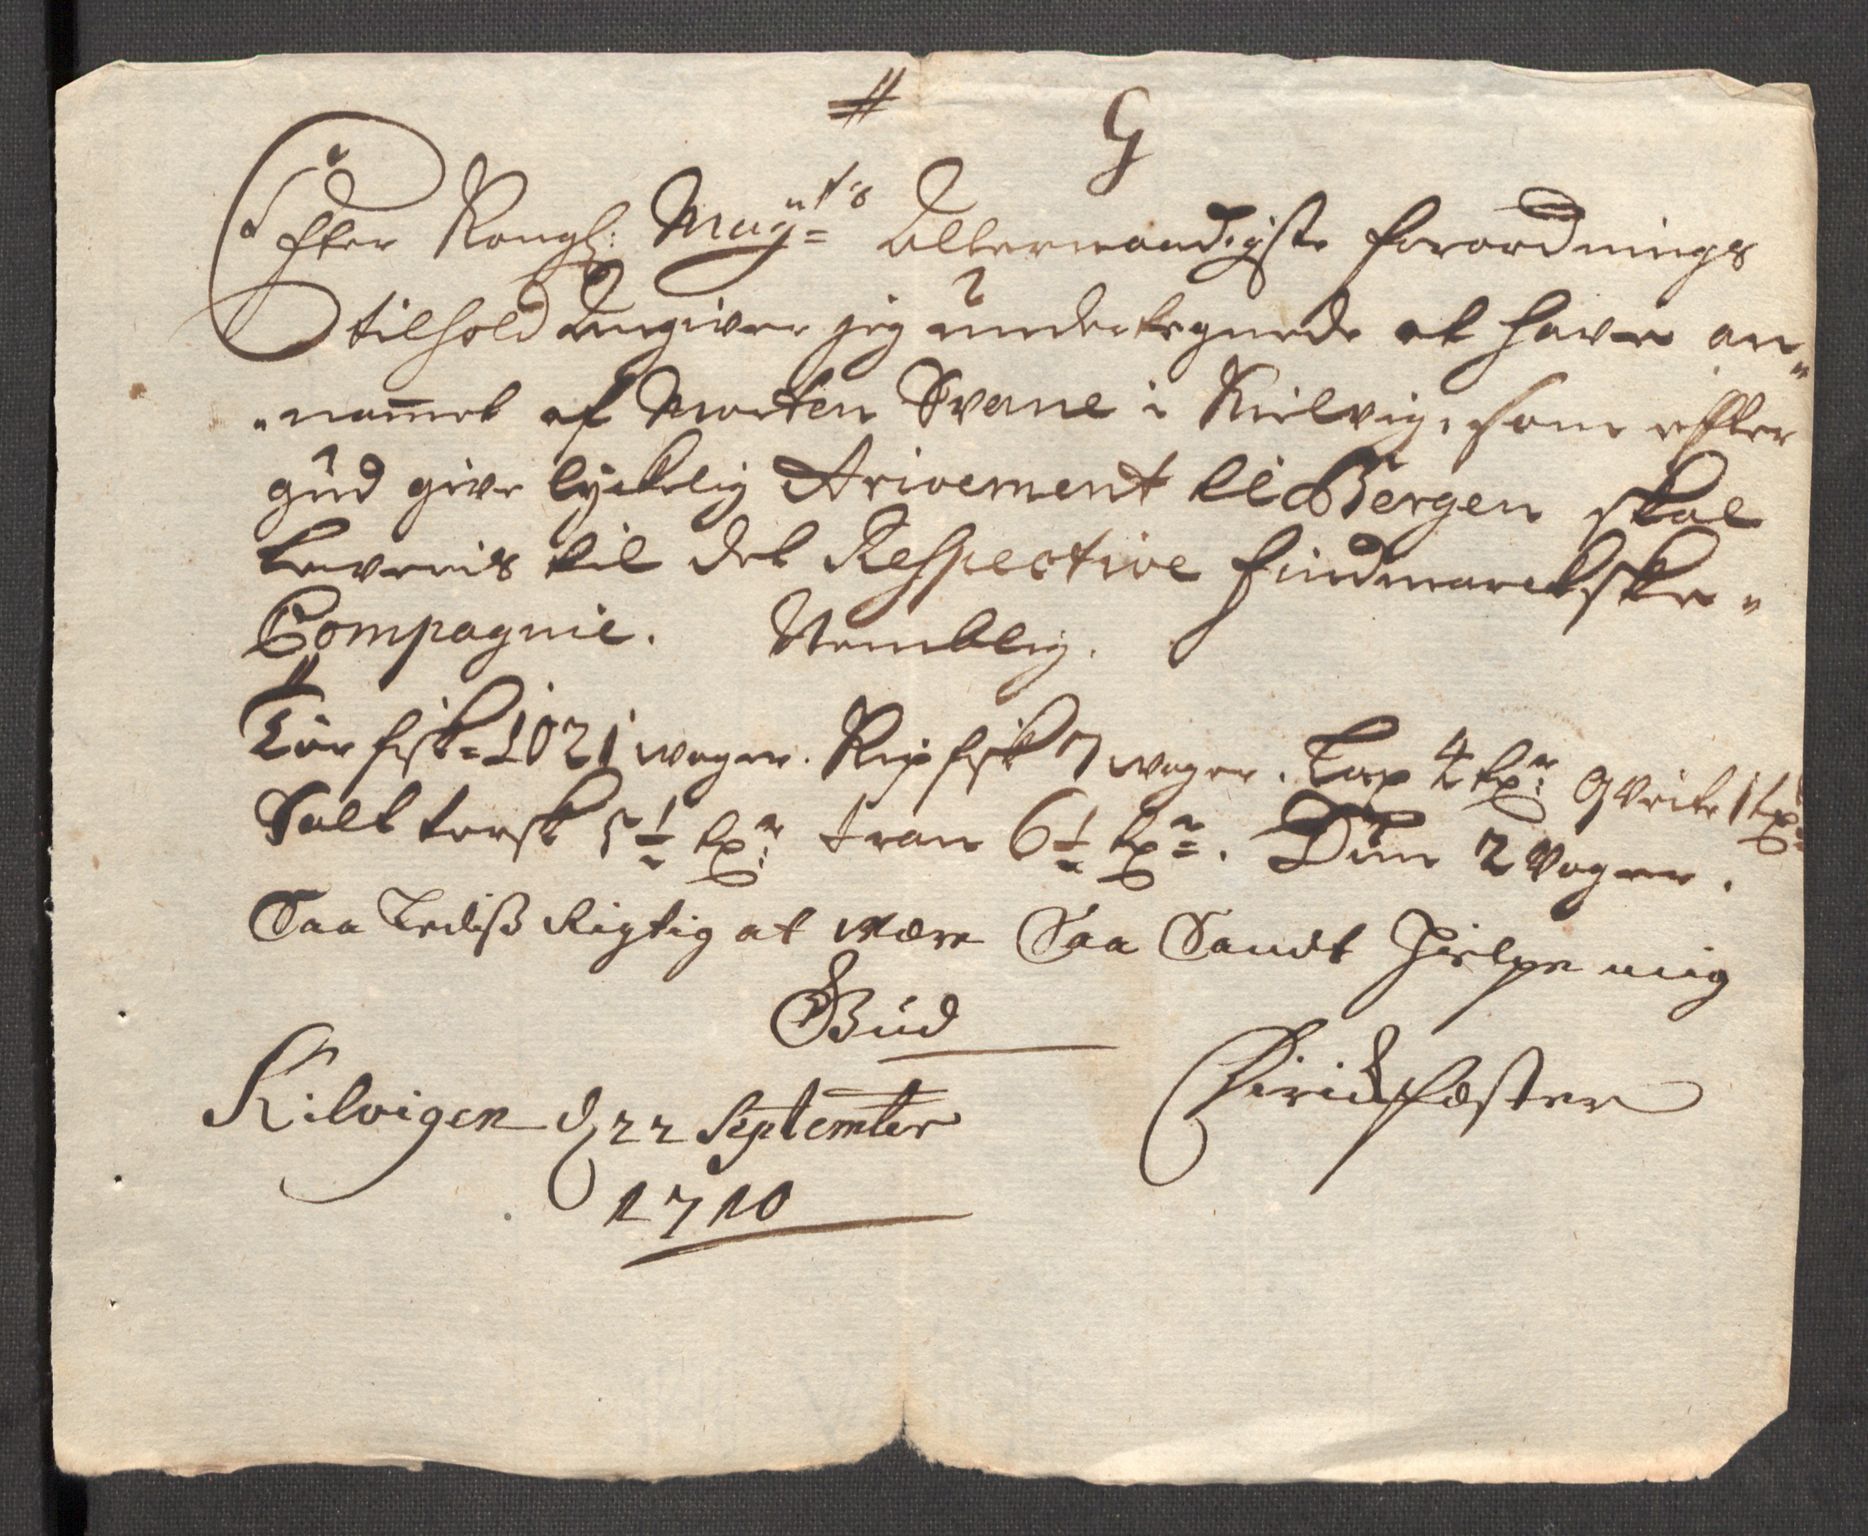 G
Efter Kongl: May:ts Allernaadigste forordnings
tilhold Angiver jeg undertegnede at have an-
nammet af Morten Svane i Kielvig, som efter
gud give lyckelig Arivement til Bergen skal
leveris til det Respective findmarckske
Compagnie. Nemblig.
Tør fisk 1021 woger. Rip fisk 7 woger. Lax 4 tr: qveite 1 tr
Salt torsk 5½ tr: tran 6½ tr. Duun 2 Voger.
Saa Rigtig at være Saa Sandt Hielpe mig
Gud
Kilvigen d 22 September
1710